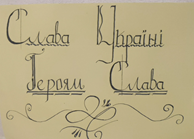 Слава Україні
Героям Слава